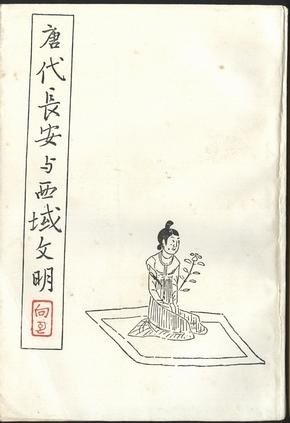 唐代長安与西域文明
向达